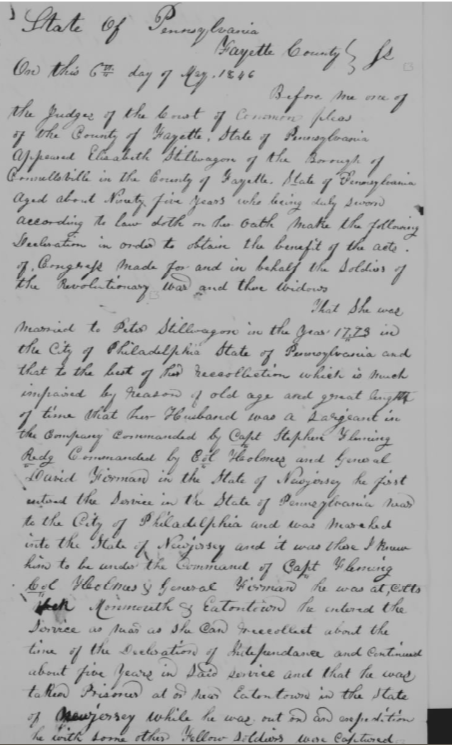 State Of Pennsylvania
Fayette County } Ss
On this 6th day of May. 1846
Before me one of
the Judges of the Court of Common pleas
of the County of Fayette. State of Pennsylvania
Appeared Elizabeth Stillwagon of the Borough of
Connellsville in the County of Fayette. State of Pennsylvania
Aged about Ninety five years who being duly sworn
according to law doth on her oath make the following
Declaration in order to obtain the benefit of the acts.
of. Congress made for and in behalf the Soldies of
the Revolutionary War and there widows
That She was
married to Peter Stillwagon in the Year 1773 in
the City of Philadelphia State of Pennsylvania and
that to the best of her reccollection which is much
impaired by reason of old age and great length
of time that her Husband was a Sargeant in
the Company Commanded by Capt Stephen Fleming
Regt Commanded by Col Holmes and General
David Forman in the State of Newjersey he first
enterd the Service in the State of Pennsylvania near
to the City of Philadelphia and was marched
into the State of Newjersey and it was there I knew
him to be under the Command of Capt Fleming
Col Holmes & General Forman he was at, Colts
Neck Monmouth & Eatontown he entered the
Service as near as she can reccollect about the
time of the Declaration of Independance and continued
about five Years in Said service and that he was
taken Prisoner at or near Eatontown in the State
of Newjersey while he was out on an expedition
he with some other Fellow Soldiers were Captured